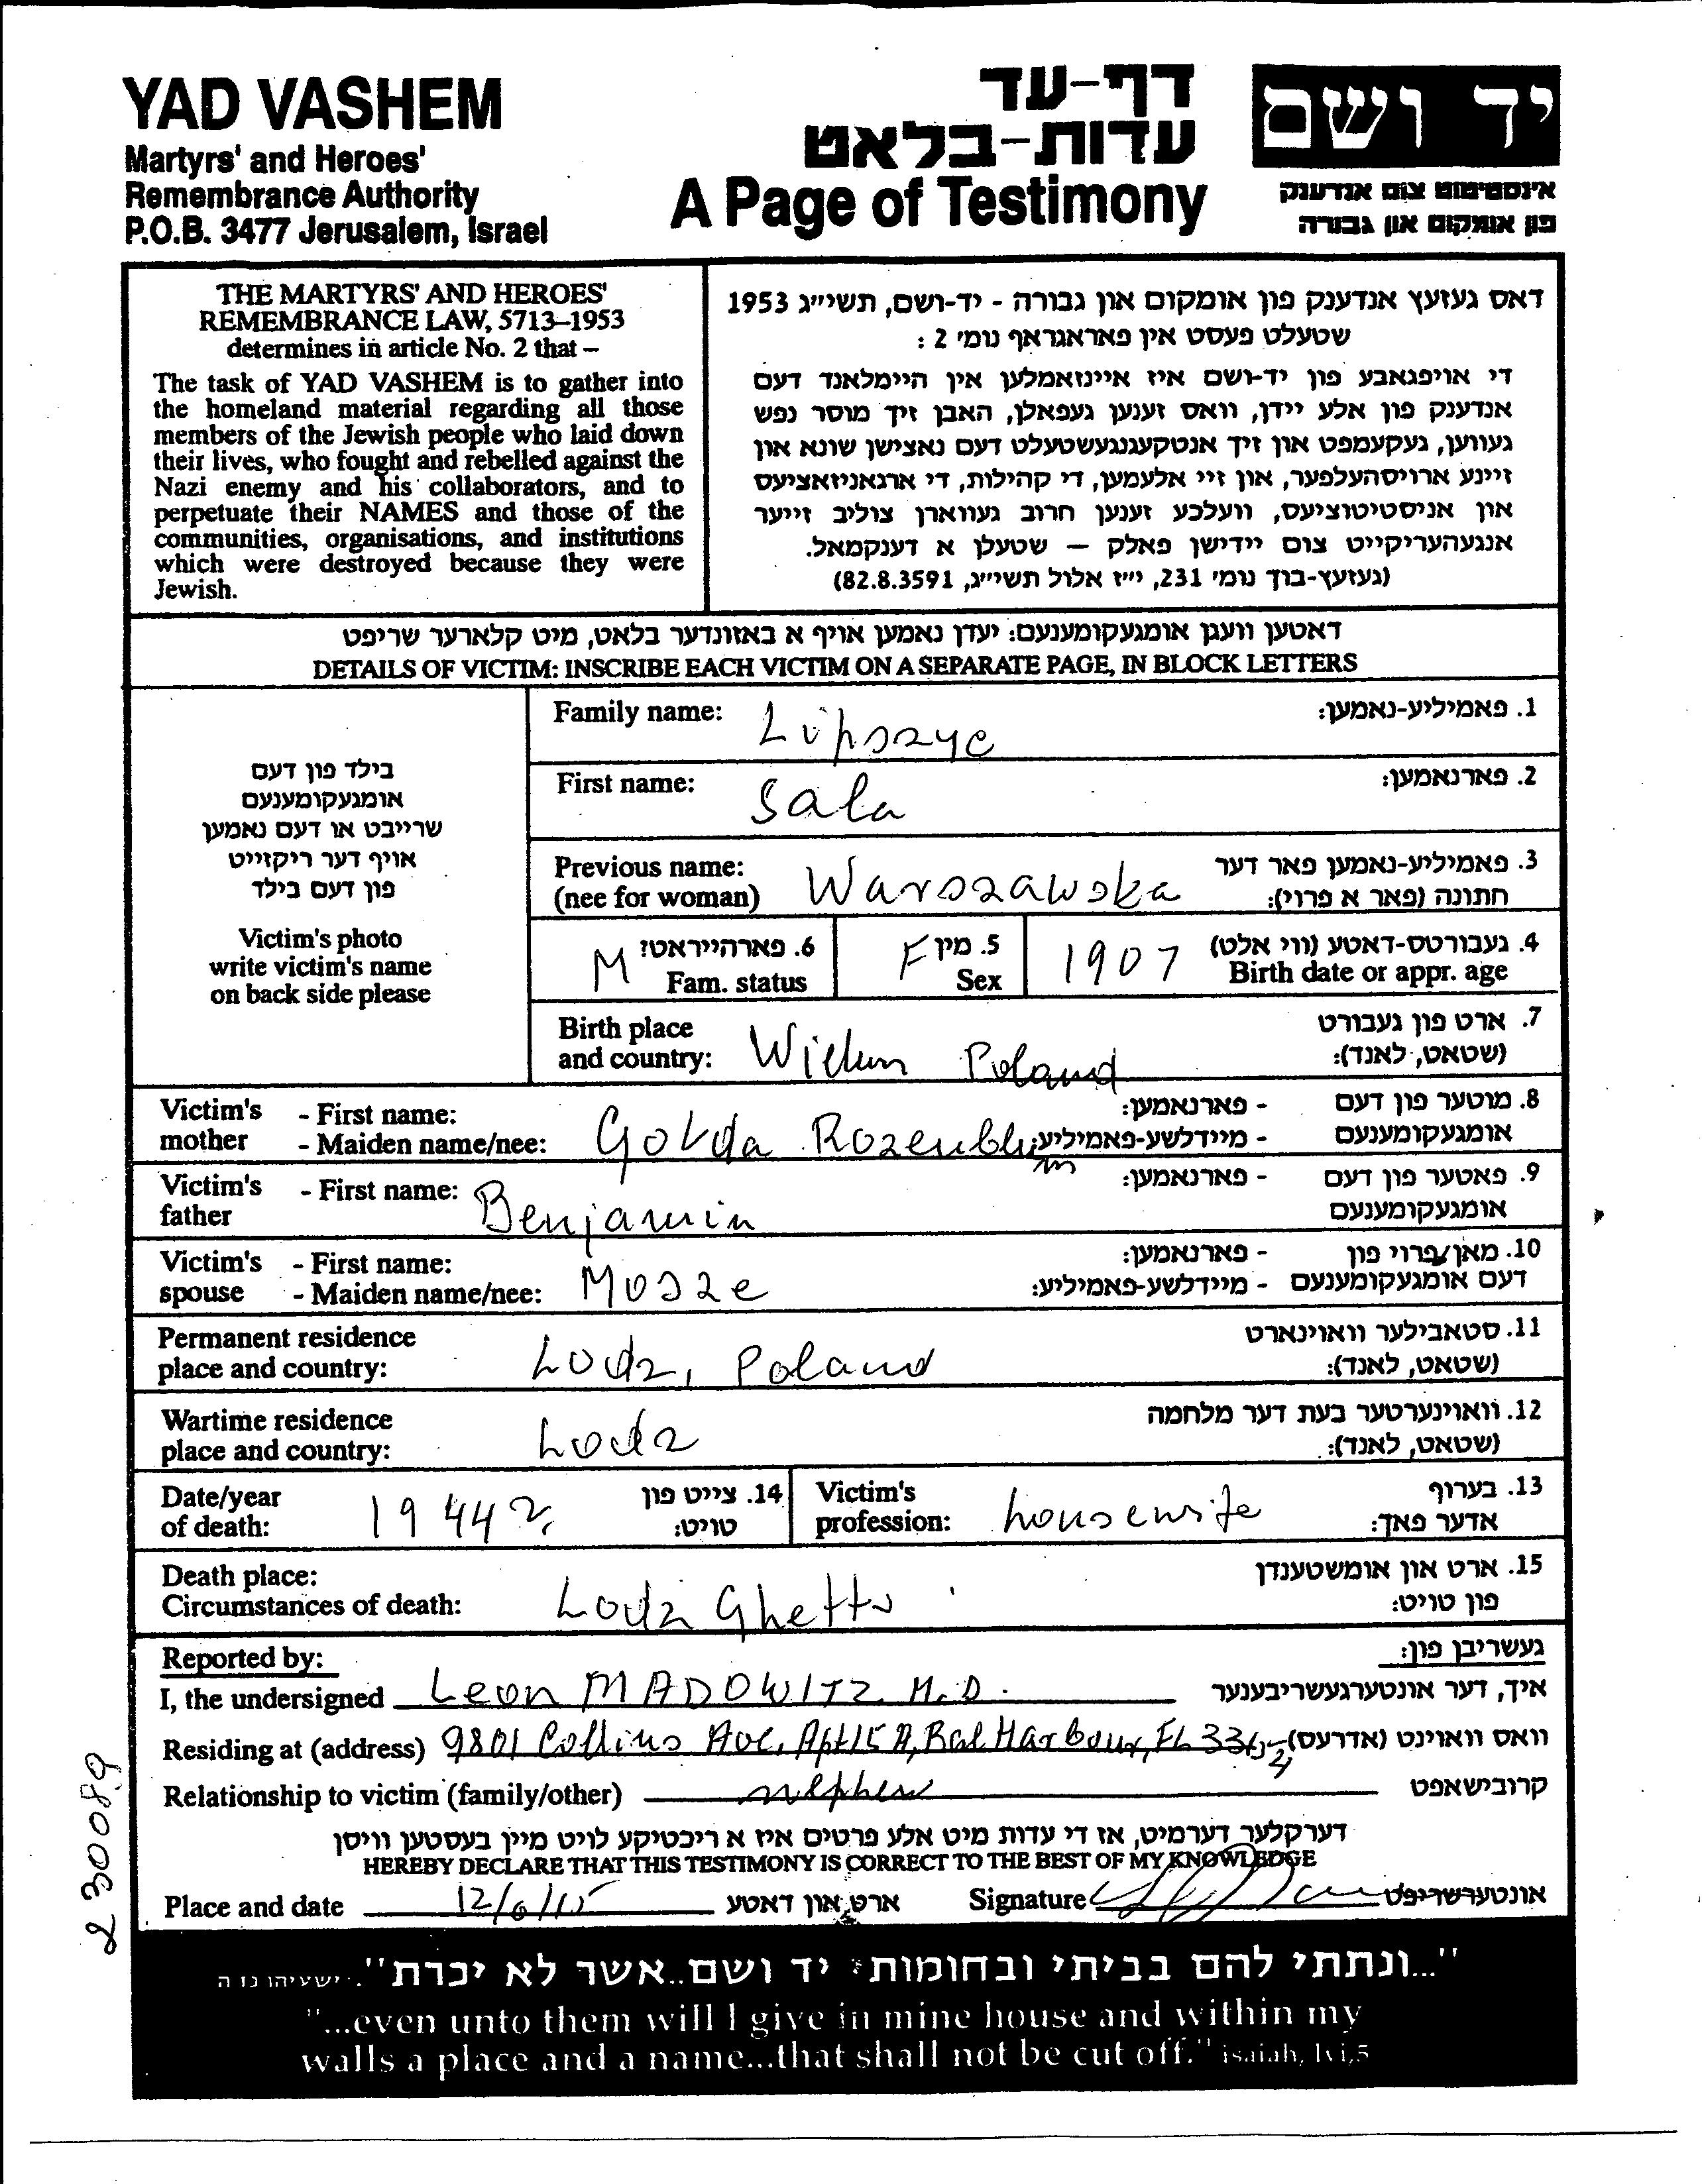 YAD VASHEM
Martyrs' and Heroes'
Remembrance Authority
P.O.B. 3477 Jerusalem, Israel
דף-עד
עדות-בלאט
A Page of Testimony
יד ושם
אינסטיטוט צום אנדענק
פון אומקום און גבורה
THE MARTYRS' AND HEROES'
REMEMBRANCE LAW, 5713–1953
determines in article No. 2 that –
The task of YAD VASHEM is to gather into
the homeland material regarding all those
members of the Jewish people who laid down
their lives, who fought and rebelled against the
Nazi enemy and his collaborators, and to
perpetuate their NAMES and those of the
communities, organisations, and institutions
which were destroyed because they were
Jewish.
דאס געזעץ אנדענק פון אומקום און גבורה - יד-ושם, תשי״ג 1953
שטעלט פעסט אין פאראגראף נומ׳ 2 :
די אויפגאבע פון יד-ושם איז איינזאמלען אין היימלאנד דעם
אנדענק פון אלע יידן, וואס זענען געפאלן, האבן זיך מוסר נפש
געווען, געקעמפט און זיך אנטקעגנגעשטעלט דעם נאצישן שונא און
זיינע ארויסהעלפער, און זיי אלעמען, די קהילות, די ארגאניזאציעס
און אניסטיטוציעס, וועלכע זענען חרוב געווארן צוליב זייער
אנגעהעריקייט צום יידישן פאלק – שטעלן א דענקמאל.
(געזעץ-בוך נומ׳ 231, י״ז אלול תשי״ג, 82.8.3591)
דאטען וועגן אומגעקומענעם: יעדן נאמען אויף א באזונדער בלאט, מיט קלארער שריפט
DETAILS OF VICTIM: INSCRIBE EACH VICTIM ON A SEPARATE PAGE, IN BLOCK LETTERS
בילד פון דעם
אומגעקומענעם
שרייבט או דעם נאמען
אויף דער ריקזייט
פון דעם בילד
Victim's photo
write victim's name
on back side please
Family name: Lipszyc 1. פאמיליע-נאמען:
First name: Sala 2. פארנאמען:
Previous name: 3. פאמיליע-נאמען פאר דער
(nee for woman) Warszawska חתונה (פאר א פרוי):
M 6. פארהייראטז F 5. מין 1907 4. געבורטס-דאטע (ווי אלט)
Fam. status Sex Birth date or appr. age
Birth place 7. ארט פון געבורט
and country: Wielun Poland (שטאט, לאנד):
Victim's - First name: - פארנאמען: 8. מוטער פון דעם
mother - Maiden name/nee: Golda Rozenblum - מיידלשע-פאמיליע: אומגעקומענעם
Victim's - First name: - פארנאמען: 9. פאטער פון דעם
father Benjamin אומגעקומענעם
Victim's - First name: - פארנאמען: 10. מאן/פרוי פון
spouse - Maiden name/nee: Mosze - מיידלשע-פאמיליע: דעם אומגעקומענעם
Permanent residence 11. סטאבילער וואוינארט
place and country: Lodz, Poland (שטאט, לאנד):
Wartime residence 12. וואוינערטער בעת דער מלחמה
place and country: Lodz (שטאט, לאנד):
Date/year 14. צייט פון
of death: 1944 ?, טויט:
Victim's 13. בערוף
profession: housewife אדער פאך:
Death place: 15. ארט און אומשטענדן
Circumstances of death: Lodz Ghetto פון טויט:
Reported by: געשריבן פון:
I, the undersigned Leon MADOWITZ M.D. איך, דער אונטערגעשריבענער
Residing at (address) 9801 Collins Ave, Apt 15 A, Bal Harbour, FL וואס וואוינט (אדרעס)
Relationship to victim (family/other) nephew קרובישאפט
דערקלער דערמיט, אז די עדות מיט אלע פרטים איז א ריכטיקע לויט מיין בעסטען וויסן
HEREBY DECLARE THAT THIS TESTIMONY IS CORRECT TO THE BEST OF MY KNOWLEDGE
Place and date 12/6/15 ארט און דאטע Signature אונטערשריפט
230089
"...ונתתי להם בביתי ובחומותי יד ושם..אשר לא יכרת". ישעיהו נו ה
"...even unto them will I give in mine house and within my
walls a place and a name...that shall not be cut off." isaiah, lvi,5